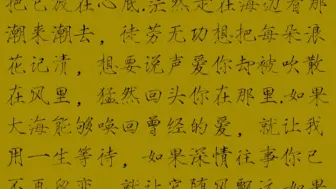 把它放在心底.茫然走在海边看那
潮来潮去，徒劳无功想把每朵浪
花记清，想要说声爱你却被吹散
在风里，猛然回头你在那里.如果
大海能够唤回曾经的爱，就让我
用一生等待，如果深情往事你已
不再留恋，就让它随风飘远.如果